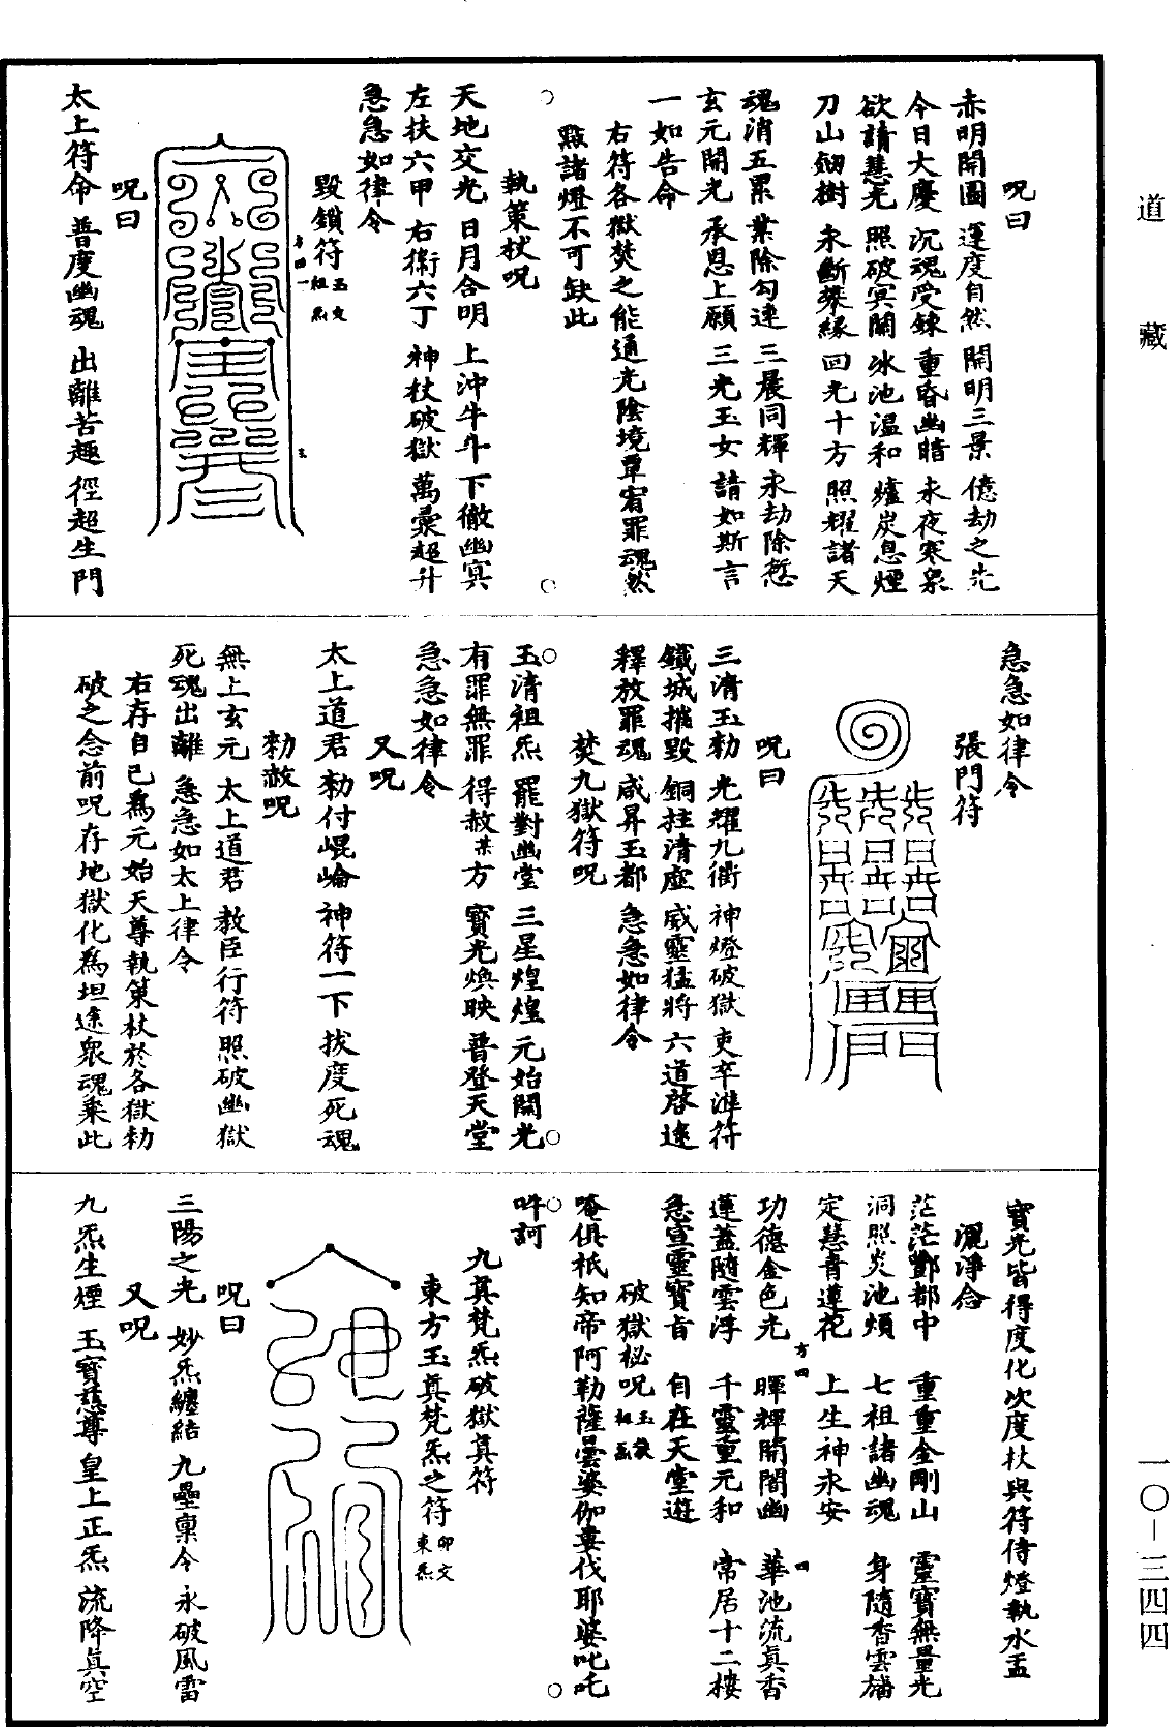 道藏
呪曰
赤明開圖 運度自然 開明三景 億劫之先
今日大慶 沉魂受鍊 重昏幽暗 永夜寒泉
欲請慧光 照破冥關 冰池溫和 爐炭息煙
刀山劒樹 永斷攀緣 回光十方 照耀諸天
魂消五累 業除勾連 三晨同輝 永劫除愆
玄元開光 承恩上願 三光玉女 請如斯言
一如告命
右符各獄焚之能通光陰境覃宥罪魂然
點諸燈不可缺此
執策杖呪
天地交光 日月合明 上沖牛斗 下徹幽冥
左扶六甲 右衛六丁 神杖破獄 萬彙超升
急急如律令
毀鎖符 玉文祖炁 方四一
呪曰
太上符命 普度幽魂 出離苦趣 徑超生門
急急如律令
張門符
呪曰
三清玉勑 光耀九衢 神燈破獄 吏卒準符
鐵城摧毀 銅拄清虛 威靈猛將 六道啓途
釋放罪魂 咸昇玉都 急急如律令
焚九獄符呪
玉清祖炁 罷對幽堂 三星煌煌 元始開光
有罪無罪 得赦某方 寶光煥映 普登天堂
急急如律令
又呪
太上道君 勑付崐崘 神符一下 拔度死魂
勑赦呪
無上玄元 太上道君 教臣行符 照破幽獄
死魂出離 急急如太上律令
右存自己為元始天尊執策杖於各獄勑
破之念前呪存地獄化為坦途眾魂乘此
寶光皆得度化次度杖與符侍燈執水盂
灑淨念
茫茫酆都中 重重金剛山 靈寶無量光
洞照炎池煩 七祖諸幽魂 身隨香雲旛
定慧青蓮花 上生神永安
功德金色光 暉輝開闇幽 華池流真香
蓮蓋隨雲浮 千靈重元和 常居十二樓
急宣靈寶旨 自在天堂遊
破獄秘呪
唵俱祇知帝阿勒薩曇婆伽婁伐耶婆叱吒
吽訶
九真梵炁破獄真符
東方玉真梵炁之符 卯文東炁
呪曰
三陽之光 妙炁纏結 九壘稟令 永破風雷
又呪
九炁生煙 玉寶慈尊 皇上正炁 流降真空
一〇-三四四